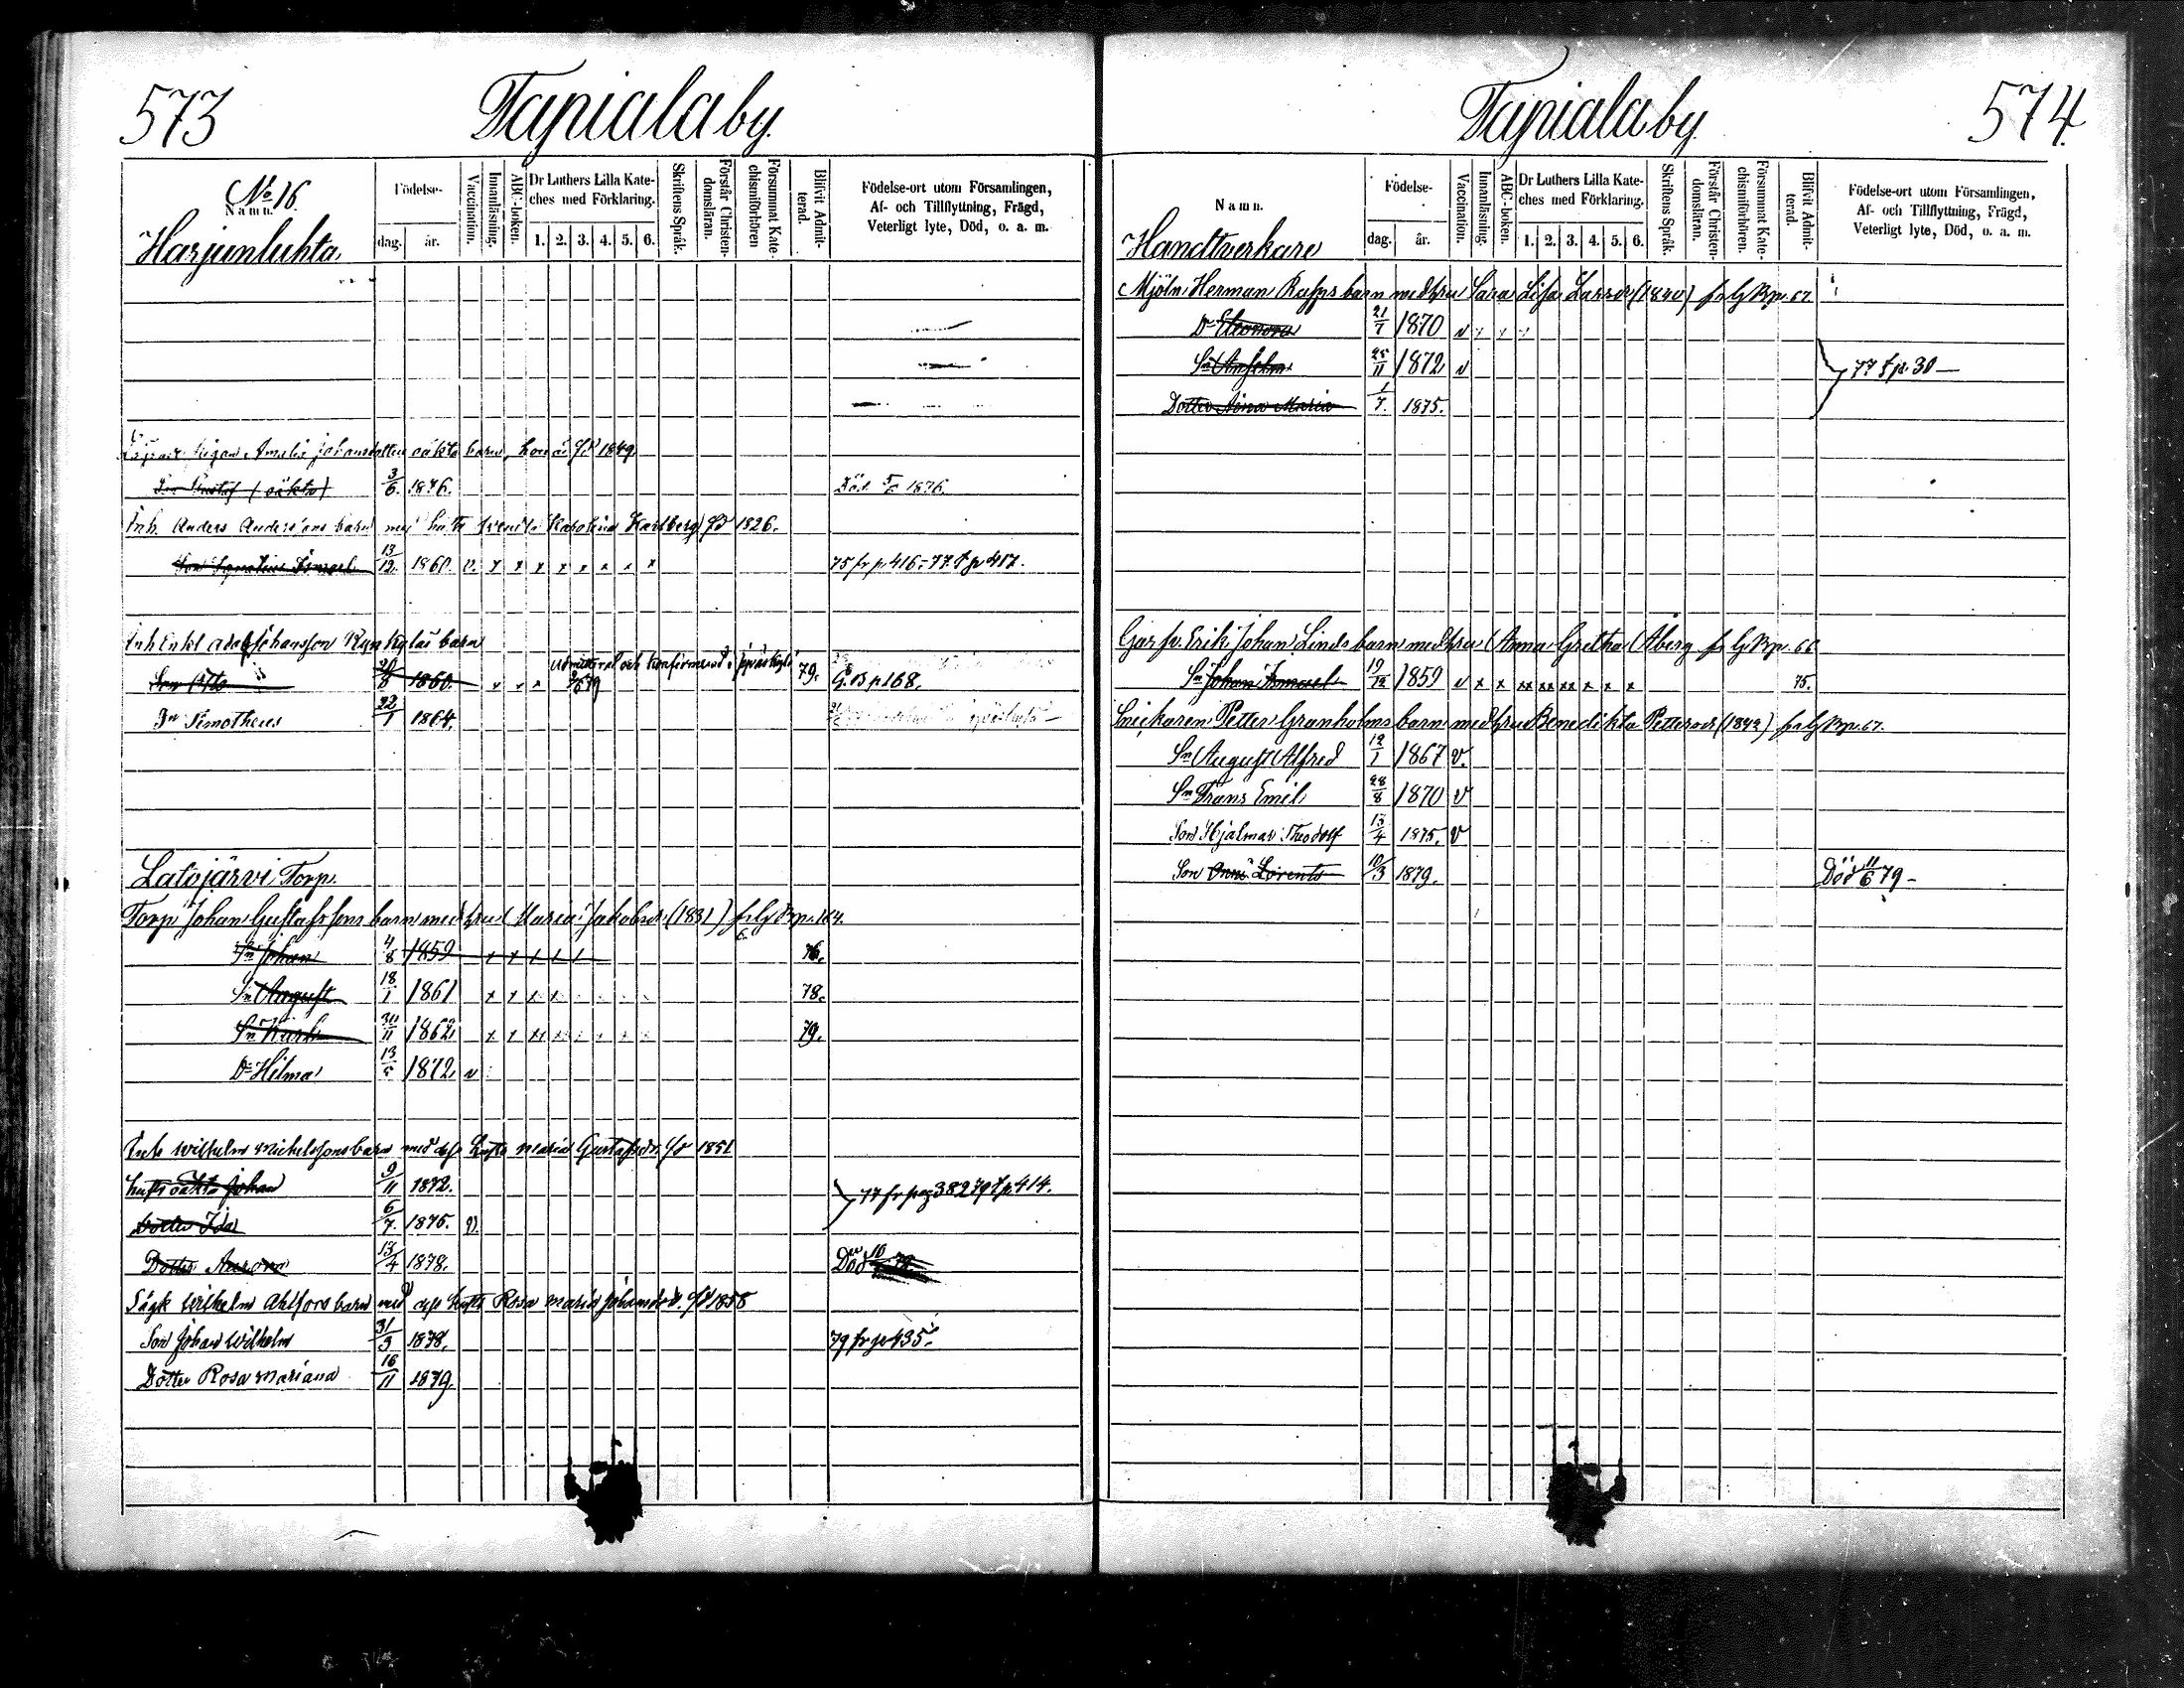 573
Tapiala by.
No 16
Namn.
Harjunluhta.
Födelse-
dag. år.
Vaccination.
Innanläsning.
ABC-boken.
Dr Luthers Lilla Kate-
ches med Förklaring.
1. 2. 3. 4. 5. 6.
Skriftens Språk.
Förstår Christen-
domsläran.
Försummat Kate-
chismiförhören
Blifvit Admit-
terad.
Födelse-ort utom Församlingen,
Af- och Tillflyttning, Frägd,
Veterligt lyte, Död, o. a. m.
pigan Amalia Johansdotters oäkta barn, hon är fd 1849
Son Gustaf (oäkta) 3/6. 1876. Död 5/6 1876.
Inh. Anders Andersons barn med Karolina Karlberg fd 1826.
Son Ismael 13/12. 1860. v. x x x x x x x x 75 fr p 416.-77. t p 417.
Inh Enkl Adolf Johansson barn
Son Otto 20/8 1860. x x x och konfirmerad i 79. G. B p 168.
Sn Timotheus 22/1 1864.
Latojärvi Torp.
Torp. Johan Gustafssons barn med hru Maria Jakobsdr (1831) fr lg Bp. 164.
Sn Johan 4/8 1859 x x x x x 76.
Sn August 18/1 1861 x x x x 78.
Sn Karl 30/11 1862 x x xx x x x x x 79.
Dr Hilma 13/5 1872 v
Inh Wilhelm Mickelssons barn med dess hustr Maria Gustafsdr. fd 1851
hustr oäkta Johan 9/11 1872.
Dotter Ida 6/7. 1875. v. } 77 fr pag 382 79 t p 414.
Dotter Aurora 13/4 1878. Död
Sågk Wilhelm Ahlfors barn med dess hustr Rosa Maria Johansdr. fd 1858
Son Johan Wilhelm 31/3 1878. 79 fr p 435.
Dotter Rosa Mariana 16/11 1879.
Tapiala by.
574.
Namn.
Handtverkare
Födelse-
dag. år.
Vaccination.
Innanläsning.
ABC-boken.
Dr Luthers Lilla Kate-
ches med Förklaring.
1. 2. 3. 4. 5. 6.
Skriftens Språk.
Förstår Christen-
domsläran.
Försummat Kate-
chismiförhören.
Blifvit Admit-
terad.
Födelse-ort utom Församlingen,
Af- och Tillflyttning, Frägd,
Veterligt lyte, Död, o. a. m.
Mjöln. Herman barn med hru Sara Lisa Larsdr (1840) fr lg Bp. 67
Dr Eleonora 21/7 1870 v x x x
Sn Anshelm 25/11 1872 v } 77 t p. 30 —
Dotter Aina Maria 1/7. 1875.
Garfv. Erik Johan Linds barn med hru Anna Gretha Åberg fr lg Bp. 66
Sn Johan Ismael 19/12 1859 v x x xx xx xx x x x 75.
Snickaren Petter Granholms barn med hru Benedikta Pettersdr (1842) fr lg Bp. 67.
Sn August Alfred 12/1 1867 v.
Sn Frans Emil 28/8 1870 v
Son Hjalmar Theodolf 13/4 1875. v
Son Onni Lorents 10/3 1879. Död 11/6 79 -